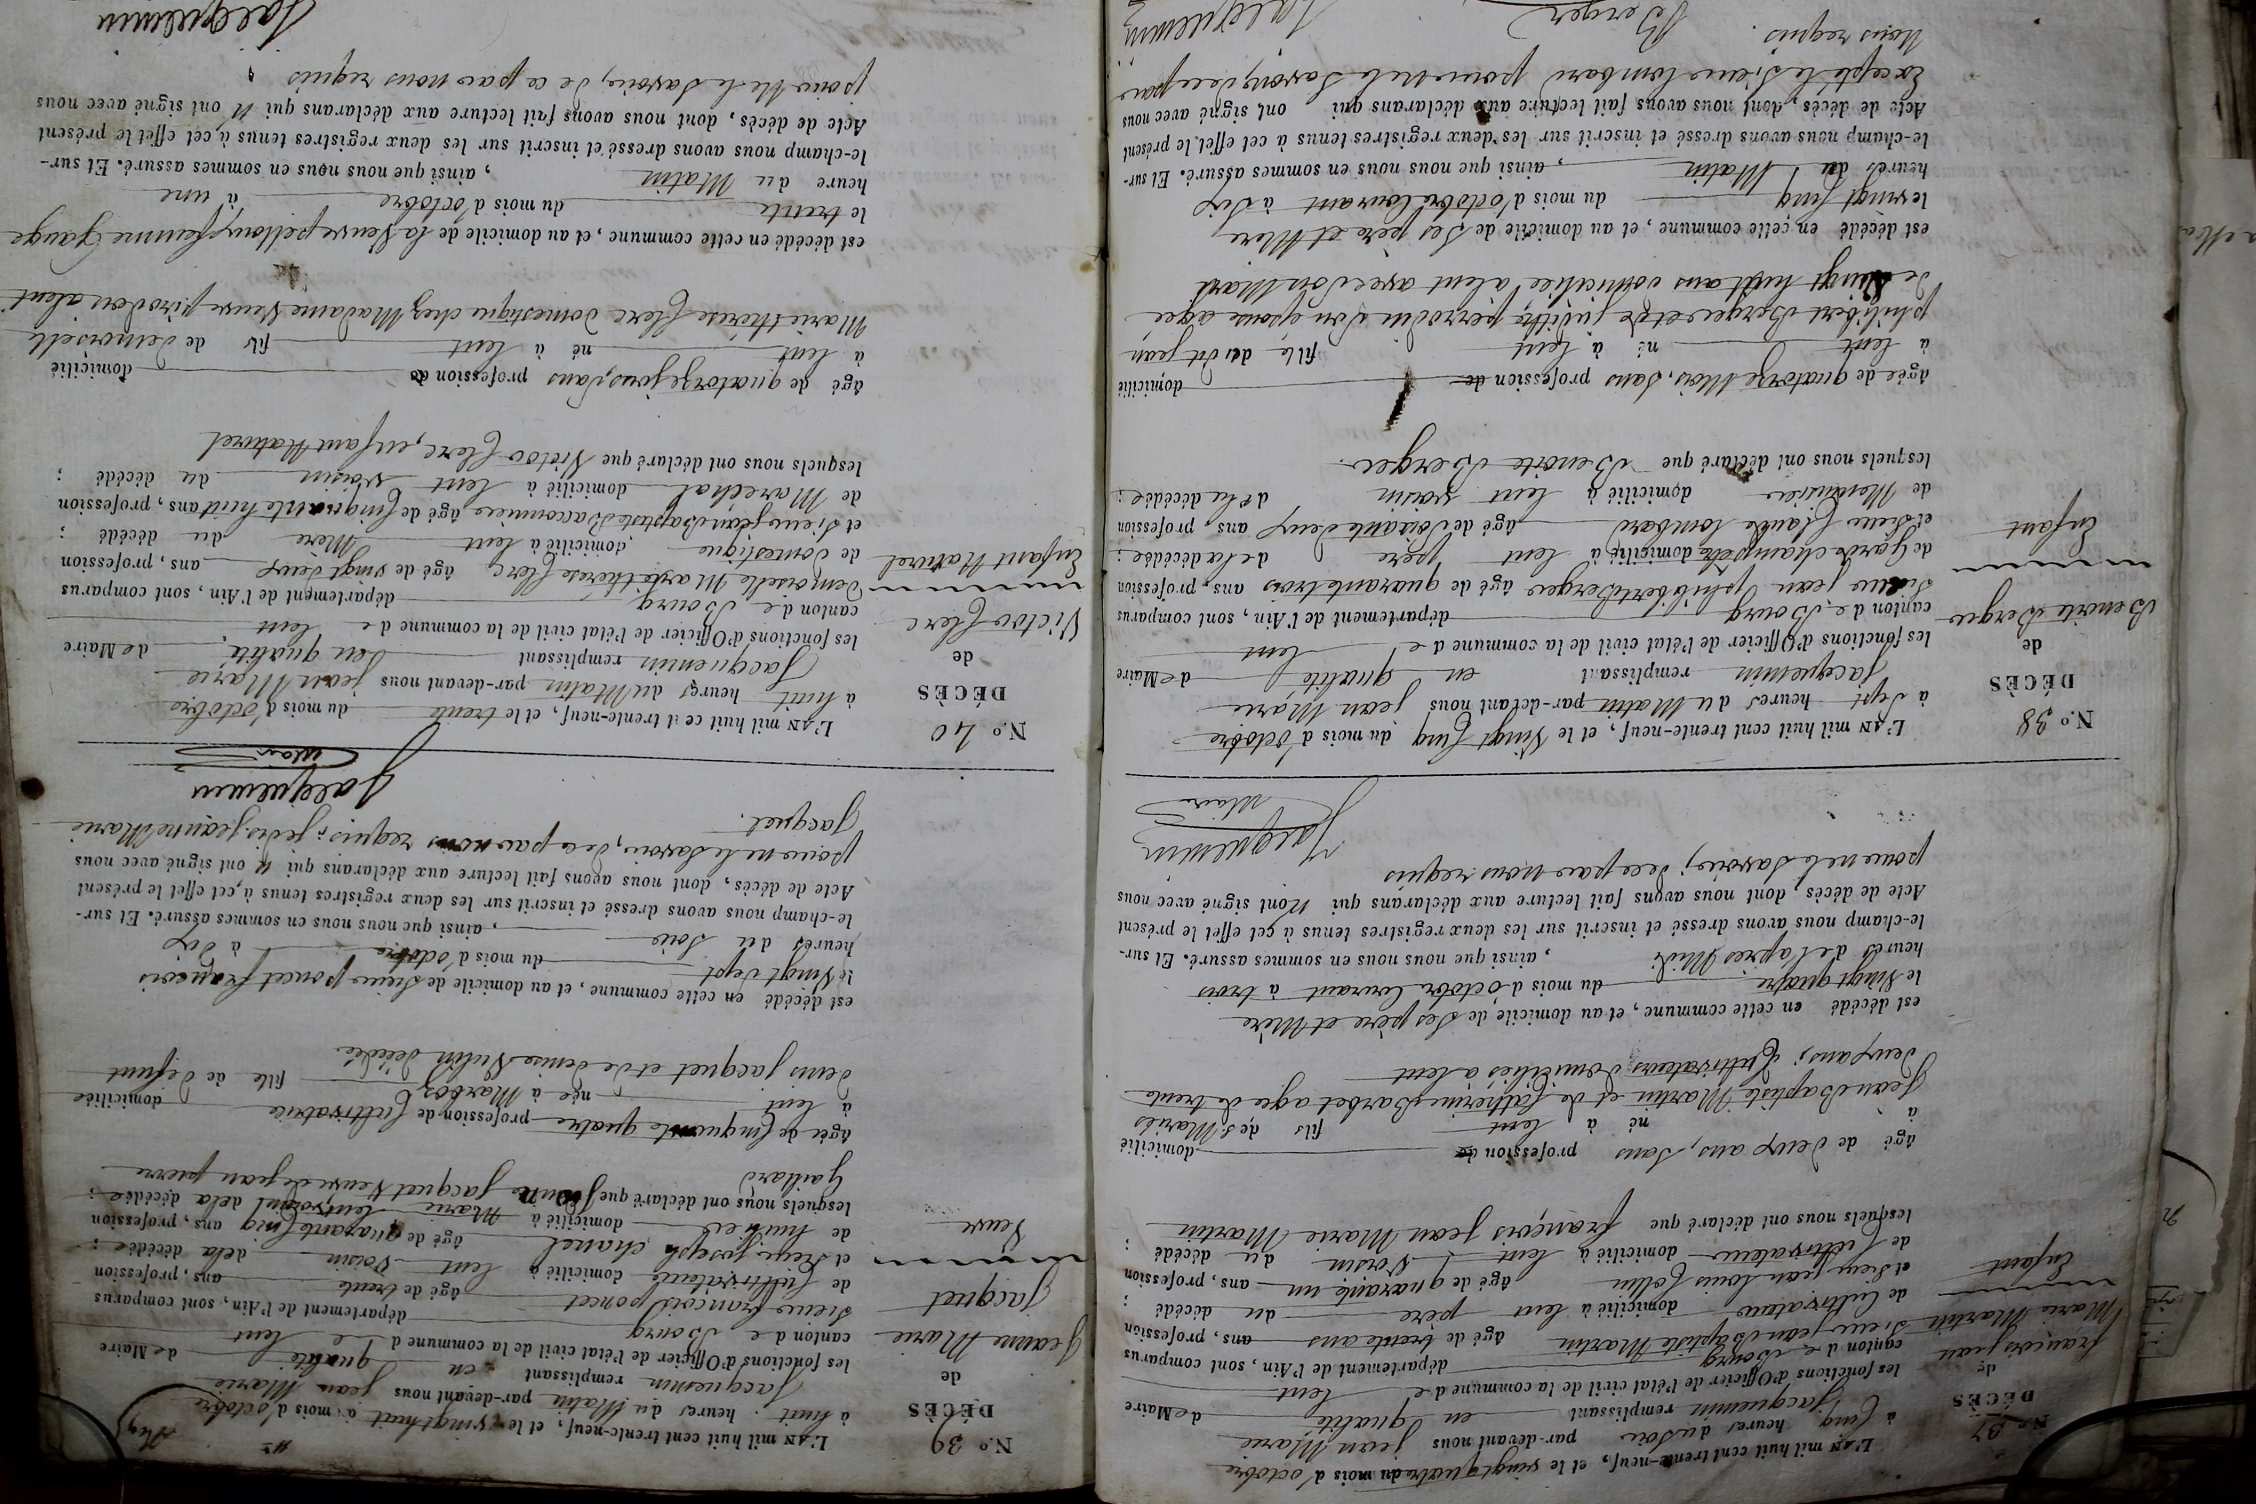 N.º 37
DÉCÈS
de
françois jean
Marie Martin
Enfant
L'AN mil huit cent trente-neuf, et le vingt quatre du mois d'octobre
à Cinq heures du Soir par-devant nous jean Marie
Jacquemin remplissant en qualité de Maire
les fonctions d'Officier de l'état civil de la commune de lent
canton de Bourg département de l'Ain, sont comparus
Sieur jean Baptiste Martin âgé de trente ans ans, profession
de Cultivateur domicilié à lent père du décédé ;
et Sieur jean louis Collin âgé de quarante un ans, profession
de Cultivateur domicilié à lent voisin du décédé ;
lesquels nous ont déclaré que françois jean Marie Martin
âgé de deux ans, sans profession de domicilié
à né à lent fils des Mariés
jean Baptiste Martin et de Catherine Barbet agée de trente
deux ans ; Cultivateurs domiciliés à lent
est décédé en cette commune, et au domicile de ses père et Mère
le vingt quatre du mois d'octobre Courant à trois
heures de l'après Midi , ainsi que nous nous en sommes assuré. Et sur-
le-champ nous avons dressé et inscrit sur les deux registres tenus à cet effet le présent
Acte de décès, dont nous avons fait lecture aux déclarans qui n'ont signé avec nous
pour ne le savoir, de ce par nous requis
Jacquemin
Maire
N.º 38
DÉCÈS
de
Benoite Berger
Enfant
L'AN mil huit cent trente-neuf, et le Vingt Cinq du mois d'octobre
à Sept heures du Matin par-devant nous jean Marie
Jacquemin remplissant en qualité de Maire
les fonctions d'Officier de l'état civil de la commune de lent
canton de Bourg département de l'Ain, sont comparus
Sieur jean philibert Berger âgé de quarante trois ans, profession
de Garde champêtre domicilié à lent père de la décédée ;
et Sieur Claude lombard âgé de soixante deux ans, profession
de Menuisier domicilié à lent voisin de la décédée ;
lesquels nous ont déclaré que Benoite Berger
âgée de quatorze Mois, sans profession de domicilié
à lent né à lent fille du dit jean
philibert Berger et de juditte perrodin son épouse agée
de vingt huit ans domiciliée a lent avec son Mari
est décédé en cette commune, et au domicile de ses père et Mère
le vingt Cinq du mois d'octobre Courant à Six
heures du Matin , ainsi que nous nous en sommes assuré. Et sur-
le-champ nous avons dressé et inscrit sur les deux registres tenus à cet effet le présent
Acte de décès, dont nous avons fait lecture aux déclarans qui ont signé avec nous
Excepté le Sieur lombard pour ne le savoir, de ce par
Nous requis.
Berger Jacquemin
N.º 39
DÉCÈS
de
Jeanne Marie
Jacquet
Veuve
L'AN mil huit cent trente-neuf, et le vingt huit du mois d'octobre
à huit heures du Matin par-devant nous jean Marie
Jacquemin remplissant en qualité de Maire
les fonctions d'Officier de l'état civil de la commune de lent
canton de Bourg département de l'Ain, sont comparus
Sieur françois poncet âgé de trente ans, profession
de Cultivateur domicilié à lent voisin de la décédée ;
et Sieur joseph chanel âgé de quarante Cinq ans, profession
de domicilié à lent de la décédée ;
lesquels nous ont déclaré que jeanne Marie jacquet Veuve de jean pierre
Gaillard
âgée de Cinquante quatre profession de Cultivatrice domiciliée
à lent née à Marboz fille de défunt
denis jacquet et de denise Vulin décédée
est décédé en cette commune, et au domicile de Sieur poncet françois
le Vingt Sept du mois d'octobre à Six
heures du Soir , ainsi que nous nous en sommes assuré. Et sur-
le-champ nous avons dressé et inscrit sur les deux registres tenus à cet effet le présent
Acte de décès, dont nous avons fait lecture aux déclarans qui n'ont signé avec nous
pour ne le savoir, de ce par nous requis ; je dis jeanne Marie
Jacquet.
Jacquemin
Maire
N.º 40
DÉCÈS
de
Victor Clerc
Enfant Naturel
L'AN mil huit cent trente-neuf, et le trente du mois d'octobre
à huit heures du Matin par-devant nous jean Marie
Jacquemin remplissant en qualité de Maire
les fonctions d'Officier de l'état civil de la commune de lent
canton de Bourg département de l'Ain, sont comparus
Demoiselle Marie thérèse Clerc âgé de vingt deux ans, profession
de domestique domicilié à lent Mère du décédé ;
et Sieur jean Baptiste âgé de Cinquante huit ans, profession
de Marechal domicilié à lent voisin du décédé ;
lesquels nous ont déclaré que Victor Clerc, enfant Naturel
âgé de quatorze jours, sans profession de domicilié
à lent né à lent fils de demoiselle
Marie thérèse Clerc domestique chez Madame Veuve pirodon a lent
est décédé en cette commune, et au domicile de la Veuve femme
le trente du mois d'octobre à une
heure du Matin , ainsi que nous nous en sommes assuré. Et sur-
le-champ nous avons dressé et inscrit sur les deux registres tenus à cet effet le présent
Acte de décès, dont nous avons fait lecture aux déclarans qui n'ont signé avec nous
pour Ne le savoir, de ce par nous requis
Jacquemin